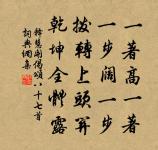 一著高一著
一步闊一步
轉上頭
乾坤全體露
釋慧開偈頌八十七首
詞典網集